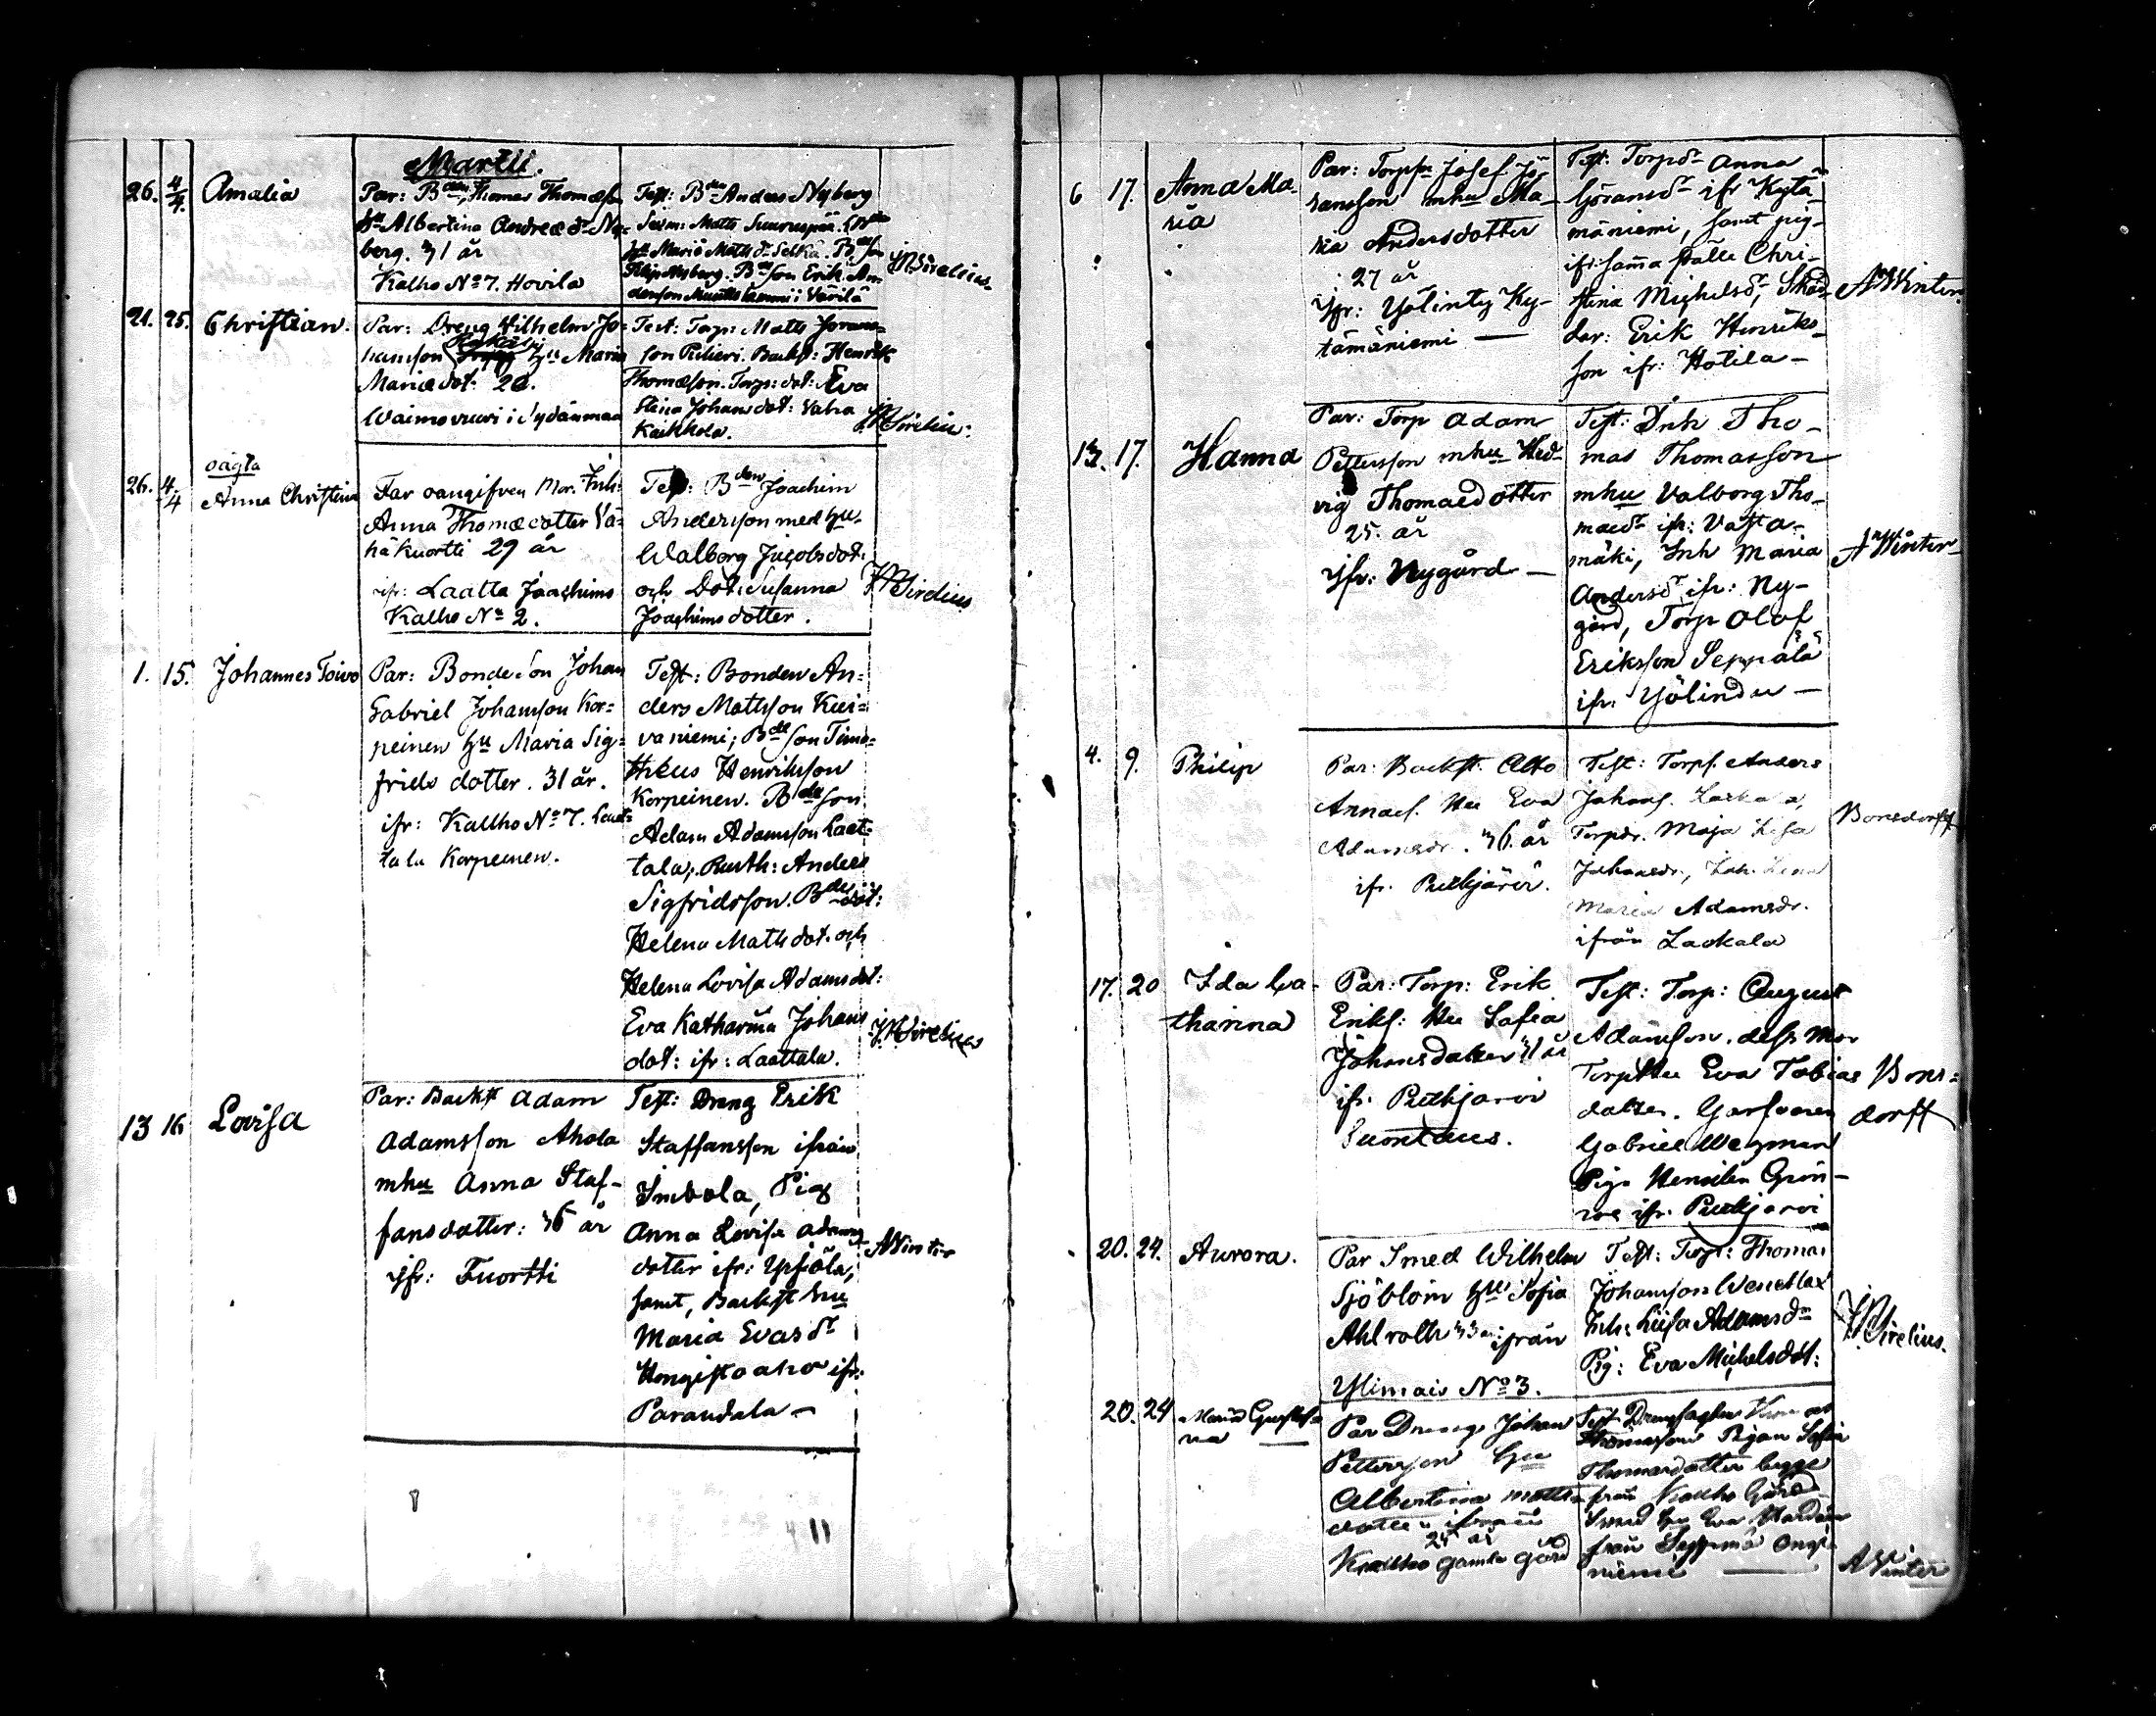 Martii.
26. 4/4. Amalia
Par: Bden Thomas Thomasson
hu Albertina Andreæ dr Ny-
berg. 31 år
Kalho No 7. Hovila
Test: Bden Anders Nyberg
hu Maria Matts dr Selkä. Bdeson
Filip Nyberg. Bdeson Erik An-
J.W. Sirelius.
21. 25. Christian.
Par: Dreng Wilhelm Jo-
hansson hu Maria
Mariædot: 20.
Waimovuori i Sydänmaa
Test: Torp: Matts Johans-
son Backst: Henrik
Thomasson. Torp: dot: Eva
Stina Johansdot: Vaha
Kaikkola.
J.W. Sirelius.
26. 4/4 oägta
Anna Christina
Far oangifven Mor. Inh:
Anna Thomædotter Vä-
häkuortti 29 år
ifr: Laatla Joachims
Kalho No 2.
Test: Bden Joachim
Andersson med hu.
Walborg Jacobsdot:
och Dot: Susanna
Joachimsdotter.
J.W. Sirelius
1. 15. Johannes Toivo
Par: Bondeson Johan
Gabriel Johansson Kor-
peinen hu Maria Sig-
frids dotter. 31 år.
ifr: Kallho No 7. Laat-
tala Korpeinen.
Test: Bonden An-
ders Mattsson Kui-
vaniemi; Bdeson Timo-
theus Henriksson
Korpeinen. Bdeson
Adam Adamsson Laat-
tala; Rusth: Anders
Sigfridsson. Bde dot:
Helena Mattsdot. och
Helena Lovisa Adamsdot:
Eva Katharina Johans
dot: ifr: Laattala.
J.W. Sirelius
13 16 Lovisa
Par: Backst Adam
Adamsson Ahola
mhu Anna Staf-
fansdotter: 36 år
ifr: Kuortti
Test: Dreng Erik
Staffansson ifrån
Imbola, Pig
Anna Lovisa Adams
dotter ifr:
samt, Backst hu
Maria Evasdr
Hongistoaho ifr:
Parandala —
AWinter
6 17. Anna Ma-
ria
Par: Torpfn Josef Jö-
ransson mhu Ma-
ria Andersdotter
27 år
ifr: Yölinty Ky-
tämäniemi —
Test: Torpdr Anna
Göransdr ifr Kytä-
mäniemi, samt pig-
ifr: samma ställe Chri-
stina Michelsdr,
Erik Henriks-
son ifr: Hotila —
AWinter.
13. 17. Hanna
Par: Torp Adam
Pettersson mhu Hed-
vig Thomasdotter
25. år
ifr: Nygård —
Test: Inh Tho-
mas Thomasson
mhu Valborg Tho-
masdr ifr: Vasta-
mäki, Inh Maria
Andersdr ifr: Ny-
gård, Torp Olof
Eriksson Seppälä
ifr: Yölindu —
AWinter
4. 9. Philip
Par: Backst. Otto
Annaes. Hu Eva
Adamsdr. 36 år
ifr. Putkjärvi.
Test: Torps. Anders
Johans. Laskala,
Torpdr. Maja Lisa
Johansdr, Inh. Lena
Maria Adamsdr.
ifrån Laskala
Bonsdorff
17. 20 Ida Ca-
tharina
Par: Torp: Erik
Eriks: Hu Sofia
Johansdotter 31 år
ifr. Putkjarvi
Suontaus.
Test: Torp: August
Adamsson. dess Mor
Torphu Eva Tobias
dotter. Garfvaren
Gabriel Wegman
Piga Grön-
roe ifr. Putkjarvi
Bons-
dorff
20. 24. Aurora.
Par Smed Wilhelm
Sjöblom hu Sofia
Ahlroth 33 år ifrån
Ylimais No 3.
Test: Torp: Thomas
Johansson
Inh: Lisa Adamsdr
Pig: Eva Michelsdot:
J.W. Sirelius.
20. 24 Maria Gustaf-
va
Par Dreng Johan
Pettersson hu
Albertina Matts-
dotter ifrån
25 år
Kallho gamla gård
Test
Thomasson Pigan Sofia
Thomasdotter begge
från Kallho Gård
Smed hu Eva
från
niemi
AWinter